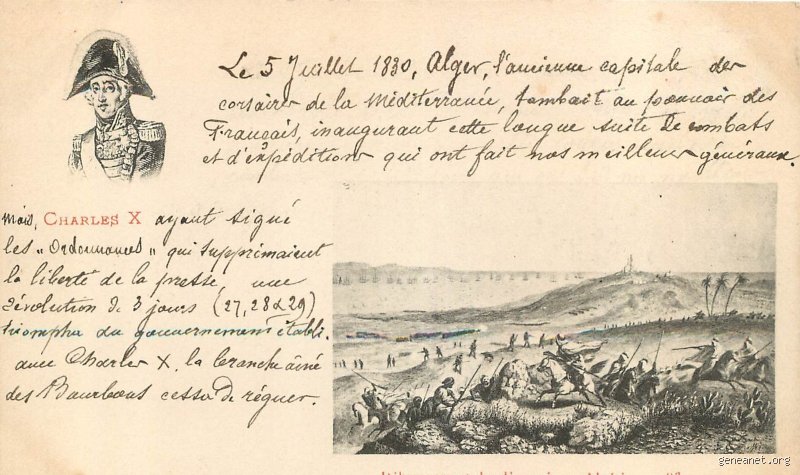 Le 5 Juillet 1830, Alger, l'ancienne capitale des
corsaires de la Méditerranée, tombait au pouvoir des
Français, inaugurant cette longue suite de combats
et d'expéditions qui ont fait nos meilleurs généraux.
Mais, CHARLES X ayant signé
les "Ordonnances" qui supprimaient
la liberté de la presse, une
révolution de 3 jours (27, 28 & 29)
triompha du gouvernement établi.
avec Charles X, la branche aîné
des Bourbons cessa de régner.
geneanet.org